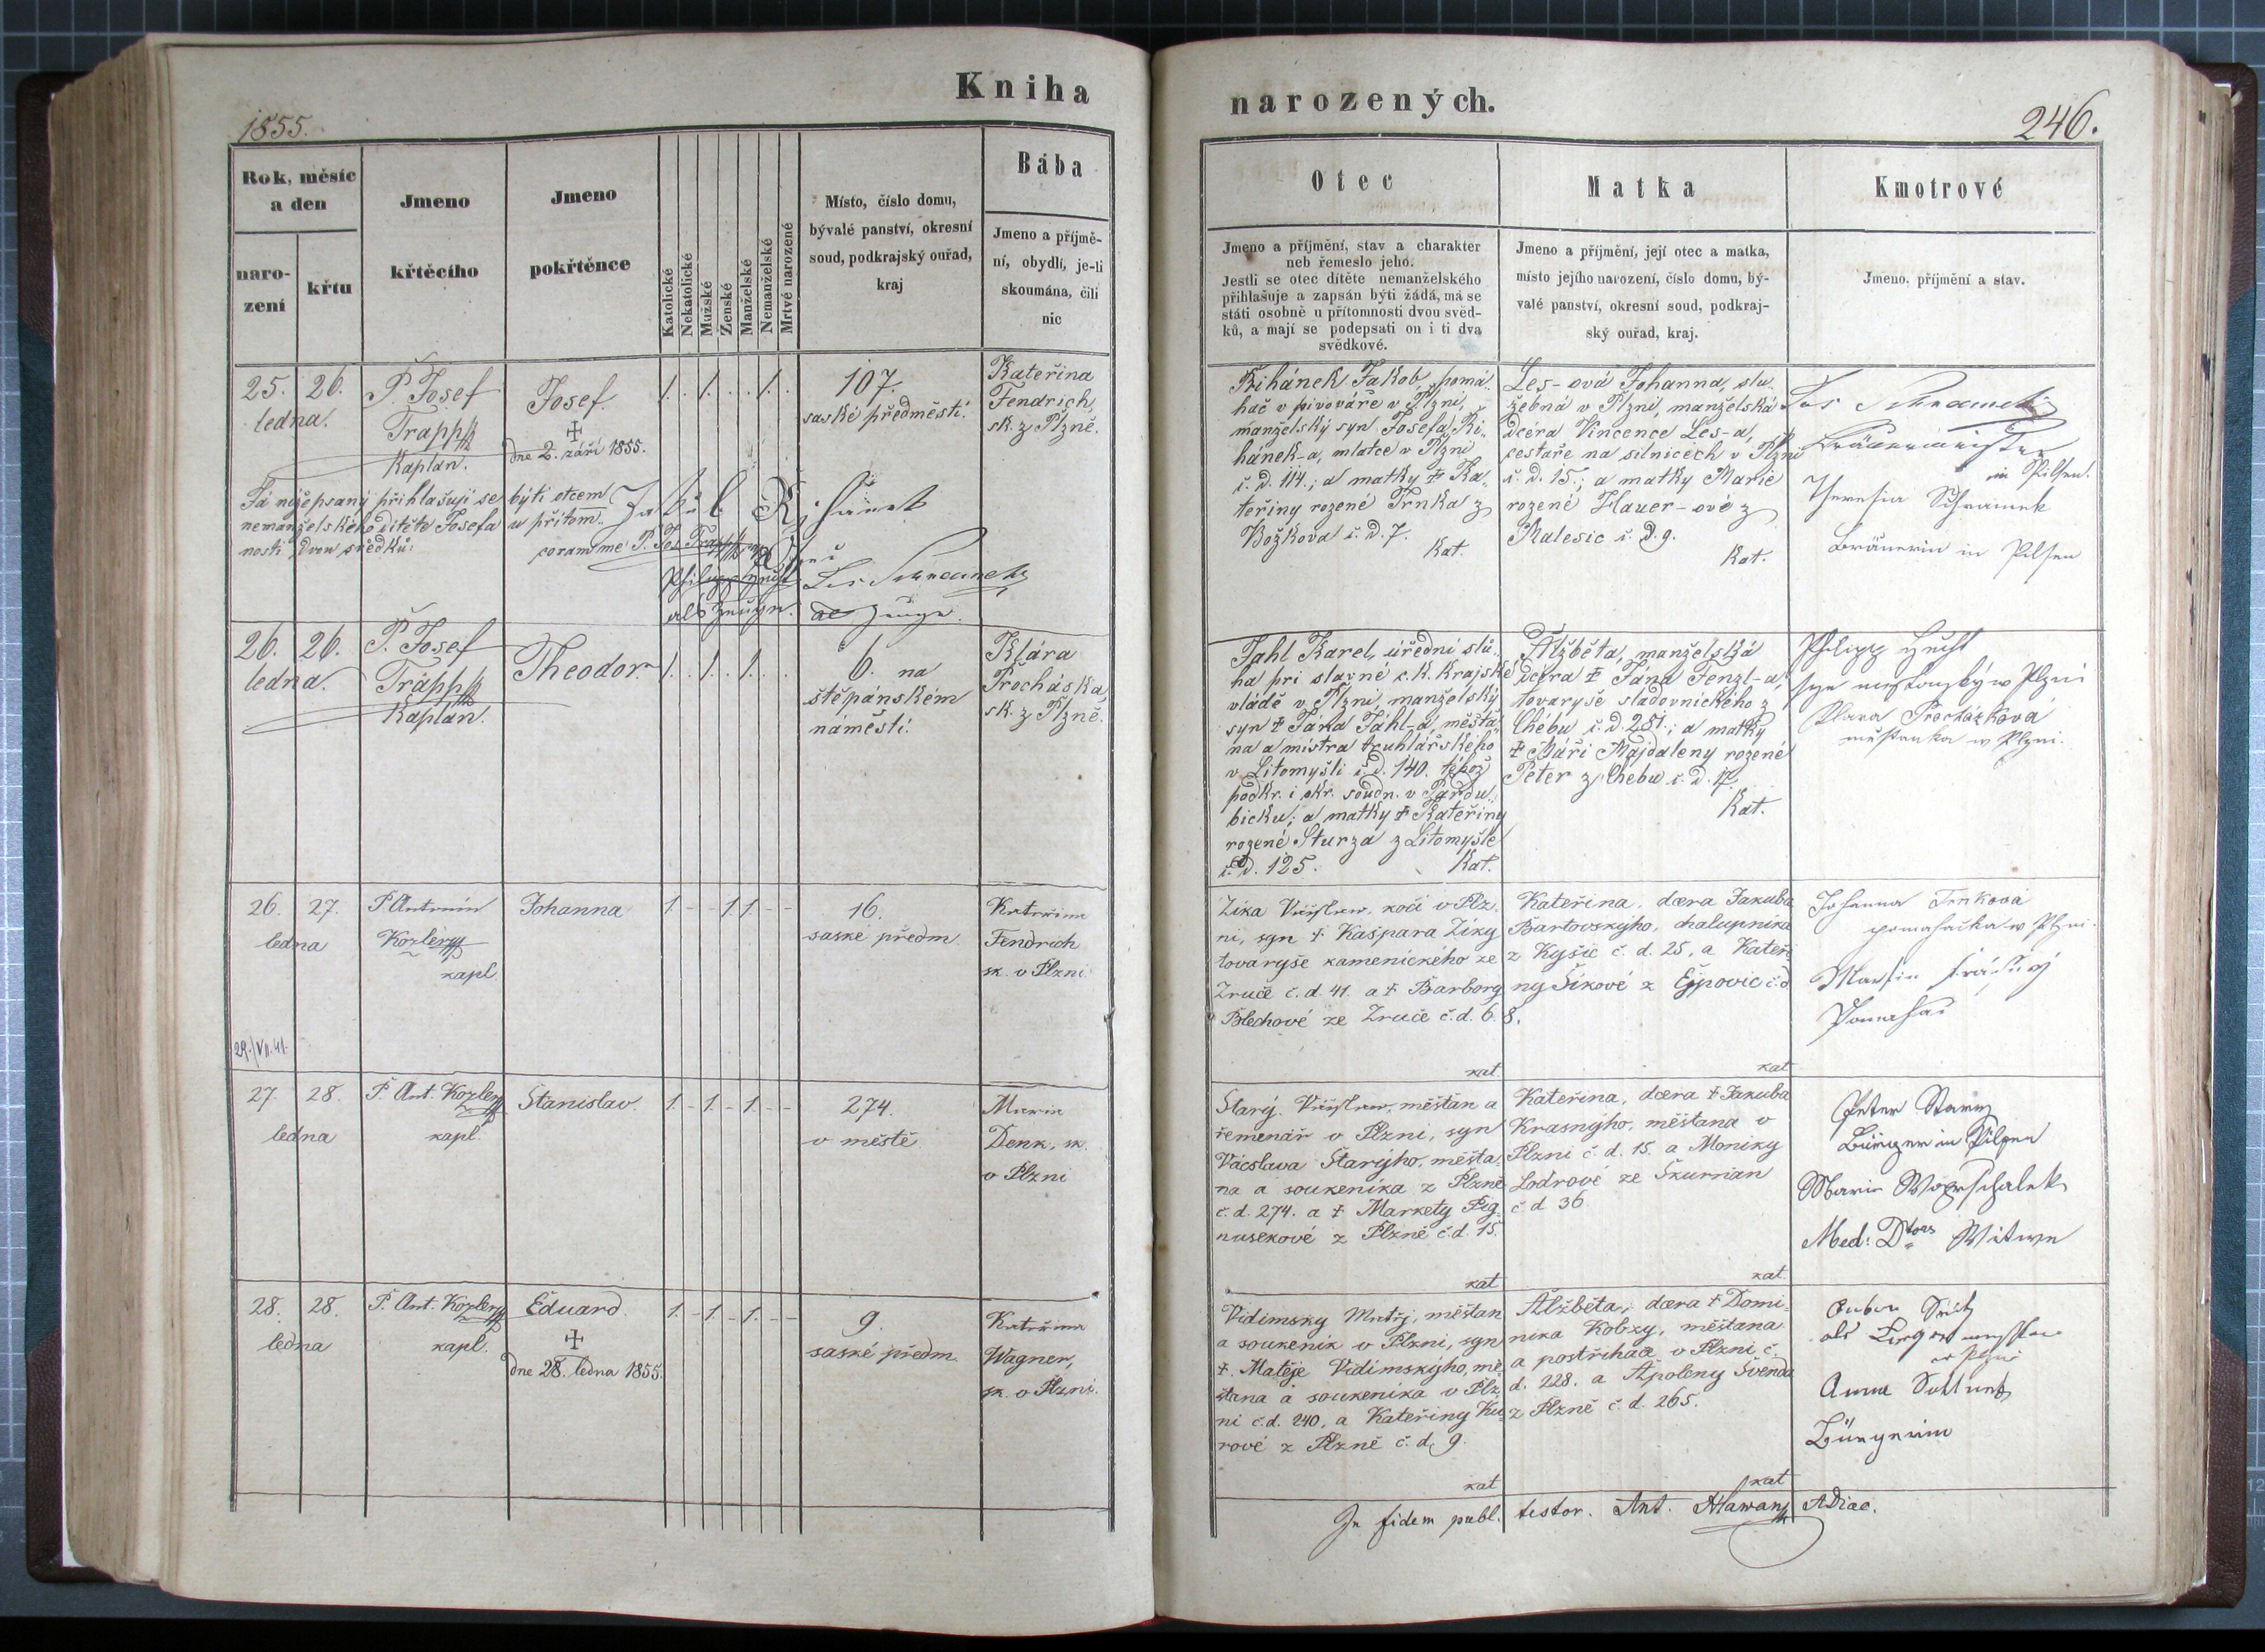 Kniha
narozených.
1855.
246.
Rok, měsíc
a den
naro-
zení
křtu
Jmeno
křtěcího
Jmeno
pokřtěnce
Katolické
Nekatolické
Mužské
Ženské
Manželské
Nemanželské
Mrtvě narozené
Místo, číslo domu,
bývalé panství, okresní
soud, podkrajský ouřad,
kraj
Bába
Jmeno a příjmě-
ní, obydlí, je-li
skoumána, čili
nic
Otec
Jmeno a příjmění, stav a charakter
neb řemeslo jeho.
Jestli se otec dítěte nemanželského
přihlašuje a zapsán býti žádá, má se
státi osobně u přítomnosti dvou svěd-
ků, a mají se podepsati on i ti dva
svědkové.
Matka
Jmeno a příjmění, její otec a matka,
místo jejího narození, číslo domu, bý-
valé panství, okresní soud, podkraj-
ský ouřad, kraj.
Kmotrové
Jmeno, příjmění a stav.
25. 26.
ledna.
P. Josef
Trapp
Kaplan.
Josef.
+
dne 2. září 1855.
1. 1. 1.
107.
saské předměstí.
Kateřina
Fendrich,
sk. z Plzně.
Řihánek Jakob, pomá-
hač v pivováře v Plzni,
manželský syn Josefa Ři-
hánek-a, mlatce v Plzni
č. d. 114.; a matky † Ka-
teřiny rozené Trnka z
Božkova č. d. 7.
Kat.
Les-ová Johanna, slu-
žebná v Plzni, manželská
dcéra Vincence Les-a,
cestaře na silnicéch v Plzni
č. d. 15.; a matky Marie
rozené Hauer-ové z
Malesic č. d. 9.
Kat.
Bräuermeister
in Pilsen.
Theresia Schramek
Bräuerin in Pilsen
Já nížepsaný přihlašuji se býti otcem
nemanželského dítěte Josefa u přítom-
nosti dvou svědků:
Jakub Řihánek
coram me P. Jos. Trapp
als Zeuge.
26. 26.
ledna.
P. Josef
Trapp
Kaplan.
Theodor.
1. 1. 1.
6. na
štěpánském
náměstí.
Klára
Procháska
sk. z Plzně.
Jahl Karel, úřední slu-
ha při slavné c. k. krajské
vládě v Plzni, manželský
syn † Jána Jahl-a, měšťa-
na a mistra truhlářského
v Litomyšli č. d. 140. téhož
podkr. i okr. soudn. v Pardu-
bicku; a matky † Kateřiny
rozené Sturza z Litomyšle
č. d. 125. Kat.
Alžběta, manželská
dcéra † Jána Fenzl-a,
tovaryše sladovnického z
Chébu č. d. 281.; a matky
† Máří Majdaleny rozené
Peter z Chebu č. d. 17.
Kat.
Klara Procházková
měšťanka w Plzni.
26. 27.
ledna
P. Antonín
Kozler
kapl.
Johanna
1 - - 1 1 - -
16.
saské předm
Kateřina
Fendrich
sk. v Plzni.
Zika Václav, kočí v Plz-
ni, syn † Kašpara Ziky
tovaryše kamenického ze
Zruče č. d. 41. a † Barbory
Blechové ze Zruče č. d. 6.
kat.
Kateřina, dcera Jakuba
Bartovskýho, chalupníka
z Kyšic č. d. 25, a Kateři-
ny Šikové z Ejpovic č. d
8.
kat
Johanna Trnková
pomahačka w Plzni.
Martin
Pomahač
29./VII.41.
27. 28.
ledna
P. Ant. Kozler
kapl.
Stanislav.
1. - 1. - 1. - -
274.
v městě.
Marie
Denk, sk.
v Plzni
Starý Václav, měšťan a
řemenář v Plzni, syn
Vácslava Starýho, měšťa-
na a soukeníka z Plzně
č. d. 274. a † Markety Pig-
nusekové z Plzně č. d. 15.
kat
Kateřina, dcera † Jakuba
Krasnýho, měšťana v
Plzni č. d. 15. a Moniky
Lodrové ze Skurňan
č d 36
kat.
Peter Stary
Bürger in Pilsen
Med: Dtors Witwe
28. 28.
ledna
P. Ant. Kozler
kapl.
Eduard.
+
dne 28. ledna 1855.
1. - 1. - 1. - -
9.
saské předm.
Kateřina
Wagner,
sk. v Plzni.
Vidimsky Matěj, měšťan
a soukeník v Plzni, syn
† Matěje Vidimskýho, mě-
šťana a soukeníka v Plz-
ni č. d. 240, a Kateřiny Ku-
rové z Plzně č. d. 9.
kat
Alžběta, dcera † Domi-
nika Kobzy, měšťana
a postřihače v Plzni č.
d. 228. a Apoleny Švenda
z Plzně č. d. 265.
kat
Anna
Bürgerin
In fidem publ. testor. Ant. Hlawan ADiac.